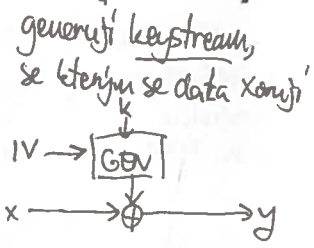 generují keystream,
se kterým se data xorují
k
IV
GEN
x
y